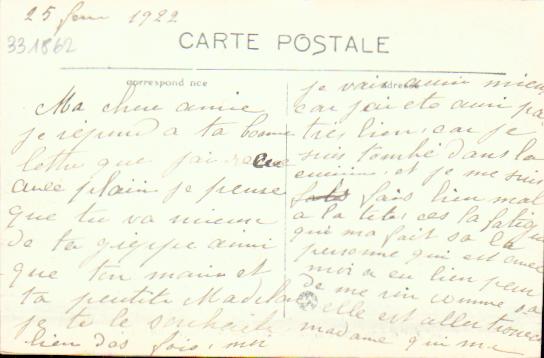 25 fevr 1922
331862
CARTE POSTALE
correspond nce
adresse
Ma chere amie
je répond a ta bonne
lettre que j'ai recue
avec plain je pense
que tu va mieux
de ta grippe ainsi
que ton marie et
ta peutite
je te le souhaite
bien des fois, moi
je vais aussi mieux
car j'ai ete aussi pa
tres bien, car je
suis tombé dans la
et je me suis
fais bien mal
a la tête, ces la fatigue
qui m'a fait sa la
personne qui est avec
moi a eu bien peur
de me voir comme sa
elle est
madame qui ma